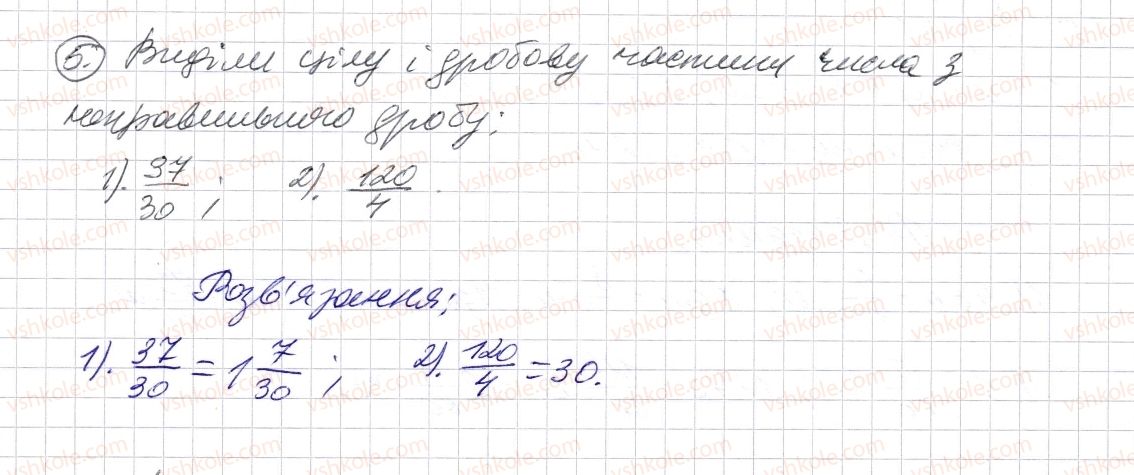 5. Виділи цілу і дробову частини числа з
неправильного дробу:
1). 37/30 ; 2). 120/4.
Розв'язання:
1). 37/30 = 1 7/30 ; 2). 120/4 = 30.